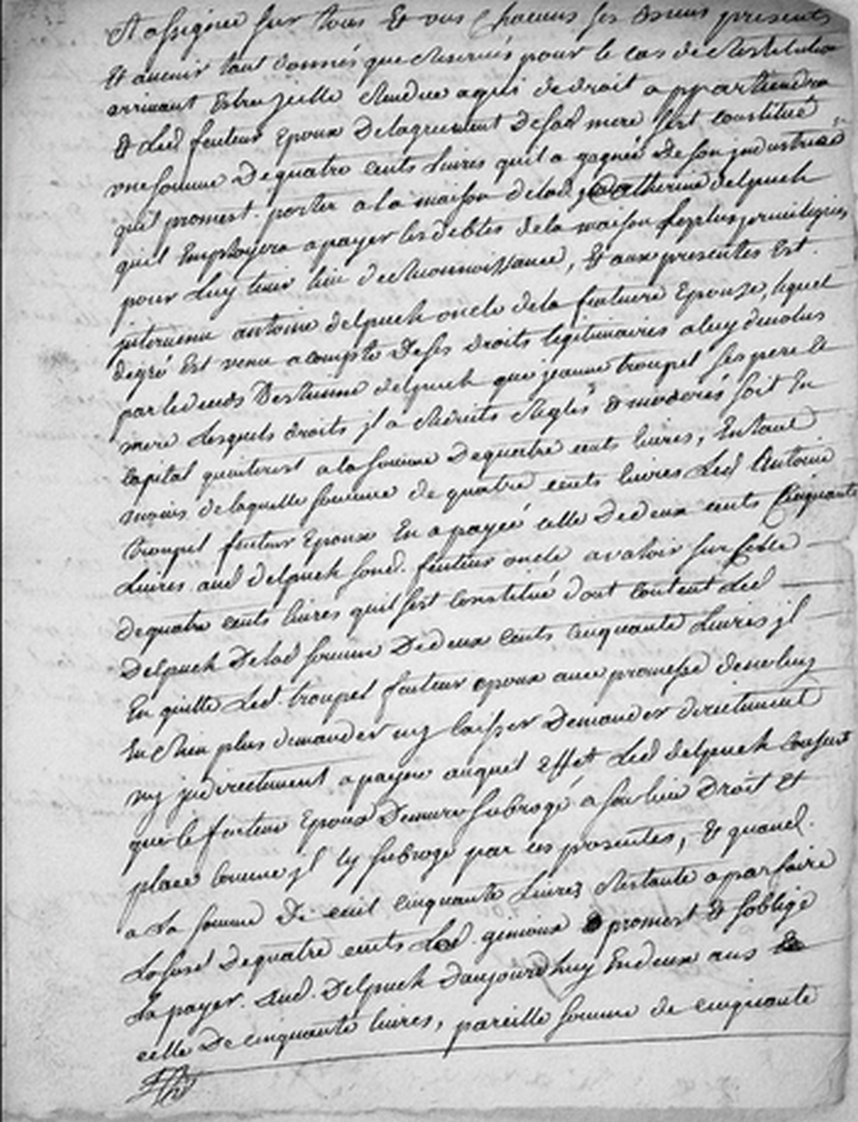 et assignée sur tous et uns chacuns ses biens presents
et avenir tant donnés que reservés pour le cas de restitution
arrivant estre jcelle rendue a qui de droit appartiendra
& led futeur epoux de lagrement desad mere sest constitué
une somme de quatre cents livres quil a gagnée de son jndustrie
quil promest porter a la maison de lad Catherine delpuech
quil employera a payer les debtes de la maison les plus privilegiées
pour luy tenir lieu de reconnoissance, & aux presentes est
jntervenu antoine delpuech oncle de la future epouze, lequel
degré est venu a compte de ses droits legitimaires a luy devolus
par le deces destienne delpuech que jeanne troupel ses pere &
mere lesquels droits jl a reduits reglés & moderés soit en
capital quinterest a la somme de quatre cents livres, en tant
moins de laquelle somme de quatre cents livres led Antoine
troupel futeur epoux en a payée celle de deux cents cinquante
livres aud delpuech futeur oncle a valoir sur celle
de quatre cents livres quil sest constitué dont content led
Delpuech de lad somme de deux cents cinquante livres jl
en quitte led. troupel futeur epoux avec promesse de ne luy
en rien plus demander ny laisser demander directement
ny jndirectement a payne auquel effet led delpuech consent
que le futeur epoux demure subrogé a son lieu droit et
place comme jl ly subroge par ces presentes, & quand
a la somme de cent cinquante livres restante a parfaire
de quatre cents led. promest & soblige
la payer aud. Delpuech daujourdhuy en deux ans
celle de cinquante livres, pareille somme de cinquante